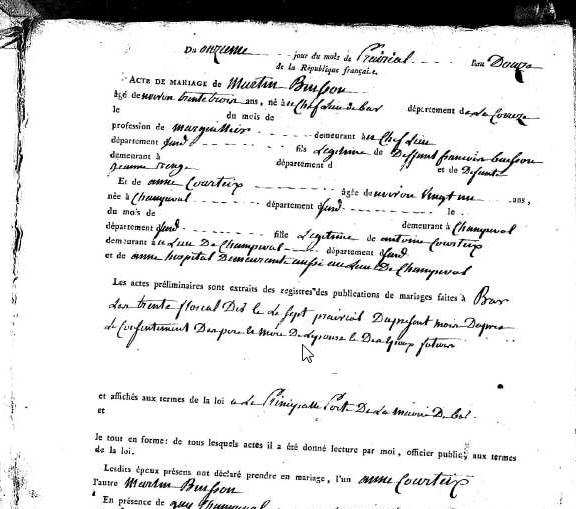 Du onzieme jour du mois de Prairial l'an Douze
de la République française.
Acte de mariage de Martin Buisson
âgé de environ trente trois ans, né à u Chef Lieu de bar département de La Correze
le du mois de
profession de marguillier demeurant à u Chef Lieu
département fusd fils Legitime de Deffunt francoir buisson
demeurant à département d et de Defunte
jeanne
Et de anne Courteix âgée de environ vingt un ans,
née à Champval département fusd le
du mois de demeurant à Champval
département fusd fille Legitime de antoine Courteix
demeurant à u Lieu De Champval département fusd
et de anne hospital Demeurante aussi au Lieu De Champval
Les actes préliminaires sont extraits des registres des publications de mariages faites à Bar
Les trente floreal Der le Le sept prairial Du present mois Dapres
Le Consentement Des pere le mere De Lepouse le Des Epoux futeurs
et affichés aux termes de la loi a La Principalle Porte De La mairie D bar
et
le tout en forme: de tous lesquels actes il a été donné lecture par moi, officier public, aux termes
de la loi.
Lesdits époux présens ont déclaré prendre en mariage, l'un anne Courteix
l'autre Martin Buisson
En présence de